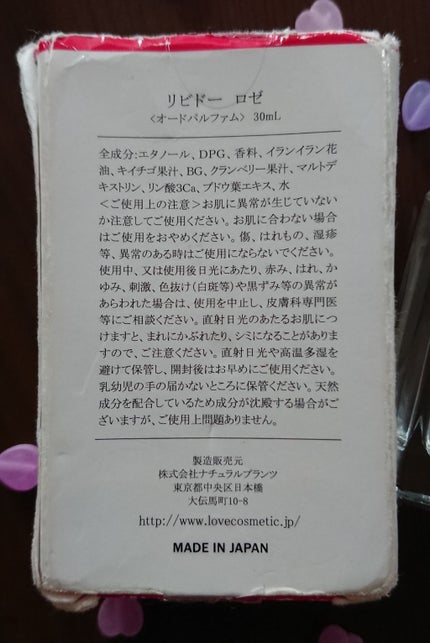 リビドー ロゼ
〈オードパルファム〉 30mL
全成分:エタノール、DPG、香料、イランイラン花
油、キイチゴ果汁、BG、クランベリー果汁、マルトデ
キストリン、リン酸3Ca、ブドウ葉エキス、水
＜ご使用上の注意＞お肌に異常が生じていない
か注意してご使用ください。お肌に合わない場合
はご使用をおやめください。傷、はれもの、湿疹
等、異常のある時はご使用にならないでください。
使用中、又は使用後日光にあたり、赤み、はれ、か
ゆみ、刺激、色抜け(白斑等)や黒ずみ等の異常が
あらわれた場合は、使用を中止し、皮膚科専門医
等にご相談ください。直射日光のあたるお肌につ
けますと、まれにかぶれたり、シミになることがありま
すので、ご注意ください。直射日光や高温多湿を
避けて保管し、開封後はお早めにご使用ください。
乳幼児の手の届かないところに保管ください。天然
成分を配合しているため成分が沈殿する場合がご
ざいますが、ご使用上問題ありません。
製造販売元
株式会社ナチュラルプランツ
東京都中央区日本橋
大伝馬町10-8
http://www.lovecosmetic.jp/
MADE IN JAPAN